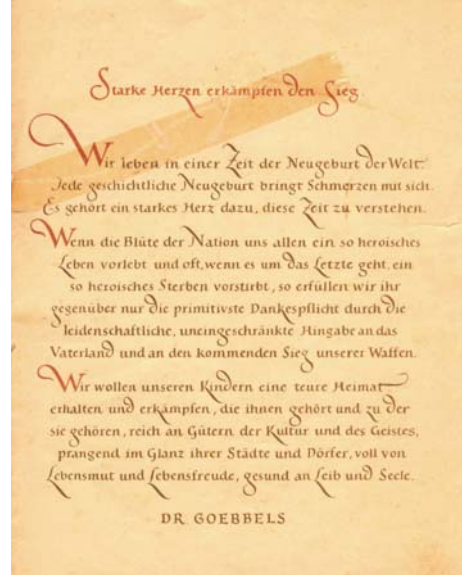 Starke Herzen erkämpfen den Sieg
Wir leben in einer Zeit der Neugeburt der Welt.
Jede geschichtliche Neugeburt bringt Schmerzen mit sich.
Es gehört ein starkes Herz dazu, diese Zeit zu verstehen.
Wenn die Blüte der Nation uns allen ein so heroisches
Leben vorlebt und oft, wenn es um das Letzte geht, ein
so heroisches Sterben vorstirbt, so erfüllen wir ihr
gegenüber nur die primitivste Dankespflicht durch die
leidenschaftliche, uneingeschränkte Hingabe an das
Vaterland und an den kommenden Sieg unserer Waffen.
Wir wollen unseren Kindern eine teure Heimat
erhalten und erkämpfen, die ihnen gehört und zu der
sie gehören, reich an Gütern der Kultur und des Geistes,
prangend im Glanz ihrer Städte und Dörfer, voll von
Lebensmut und Lebensfreude, gesund an Leib und Seele.
DR. GOEBBELS